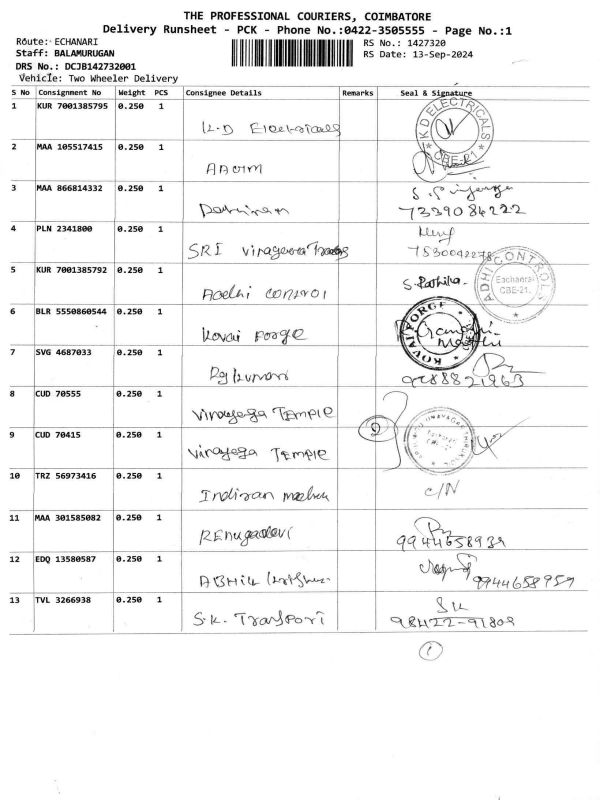 THE PROFESSIONAL COURIERS, COIMBATORE
Delivery Runsheet - PCK - Phone No.:0422-3505555 - Page No.:1
Route: ECHANARI
RS No.: 1427320
Staff: BALAMURUGAN
RS Date: 13-Sep-2024
DRS No.: DCJB142732001
Vehicle: Two Wheeler Delivery
S No Consignment No Weight PCS Consignee Details Remarks Seal & Signature
1 KUR 7001385795 0.250 1
K.D Electricals
K D ELECTRICALS CBE-21
2 MAA 105517415 1
3 MAA 866814332 0.250 1
7339084222
4 PLN 2341800 0.250 1
SRI
5 KUR 7001385792 0.250 1
Aadhi control S.
ADHI CONTROLS Eachanari CBE-21.
6 BLR 5550860544 0.250 1
Kovai Forge
KOVAI FORGE
7 SVG 4687033 0.250 1
8 CUD 70555 0.250 1
Vinayaga TEMPLE
9 CUD 70415 0.250 1
Vinayaga TEMPLE 2
10 TRZ 56973416 0.250 1
Indian C/N
11 MAA 301585082 0.250 1
RENugadevi 9944658939
12 EDQ 13580587 0.250 1
9944658959
13 TVL 3266938 0.250 1
S.K. Transport SK
98422-91809
1